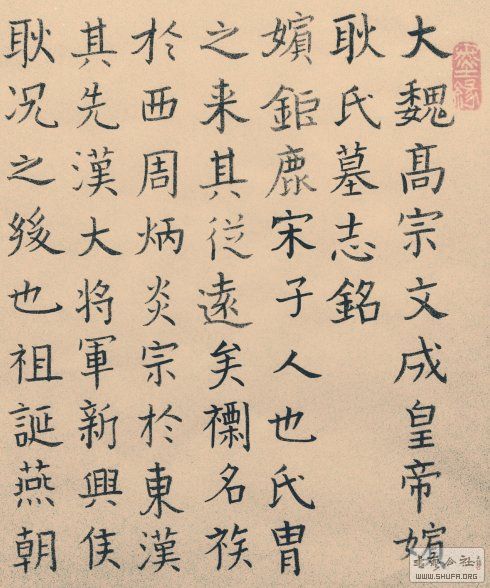 大魏髙宗文成皇帝嬪
耿氏墓志銘
嬪鉅鹿宋子人也氏胄
之来其従遠矣名族
於西周炳炎宗於東漢
其先漢大将軍新興侯
耿况之後也祖誕燕朝
书法公社
WWW.SHUFA.ORG